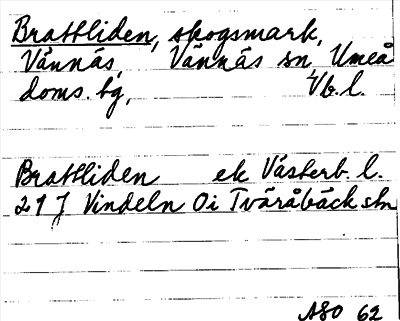 Brattliden, skogsmark,
Vännäs, Vännäs sn Umeå
doms. tg, Vb. l.
Brattliden ek Västerb. l.
21 J Vindeln Oi Tväråbäck stn
ASO 62